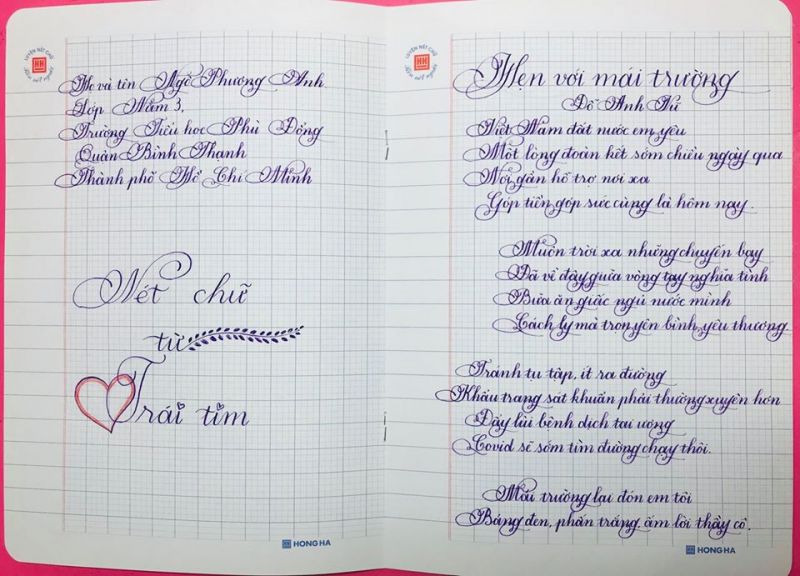 Họ và tên Ngô Phương Anh
Lớp Năm 3,
Trường Tiểu học Phù Đổng
Quận Bình Thạnh
Thành phố Hồ Chí Minh
Nét chữ
từ
Trái tim
HONG HA
LUYỆN NÉT CHỮ
Hẹn với mái trường
Đỗ Anh Tứ
Việt Nam đất nước em yêu
Một lòng đoàn kết sớm chiều ngày qua
Nơi gần hỗ trợ nơi xa
Góp tiền góp sức cùng là hôm nay.
Muôn trời xa những chuyến bay
Đã về đây giữa vòng tay nghĩa tình
Bữa ăn giấc ngủ nước mình
Cách ly mà trọn yên bình, yêu thương
Tránh tụ tập, ít ra đường
Khẩu trang sát khuẩn phải thường xuyên hơn
Đẩy lùi bệnh dịch tai ương
Covid sẽ sớm tìm đường chạy thôi.
Mái trường lại đón em tôi
Bảng đen, phấn trắng, ấm lời thầy cô.
HONG HA